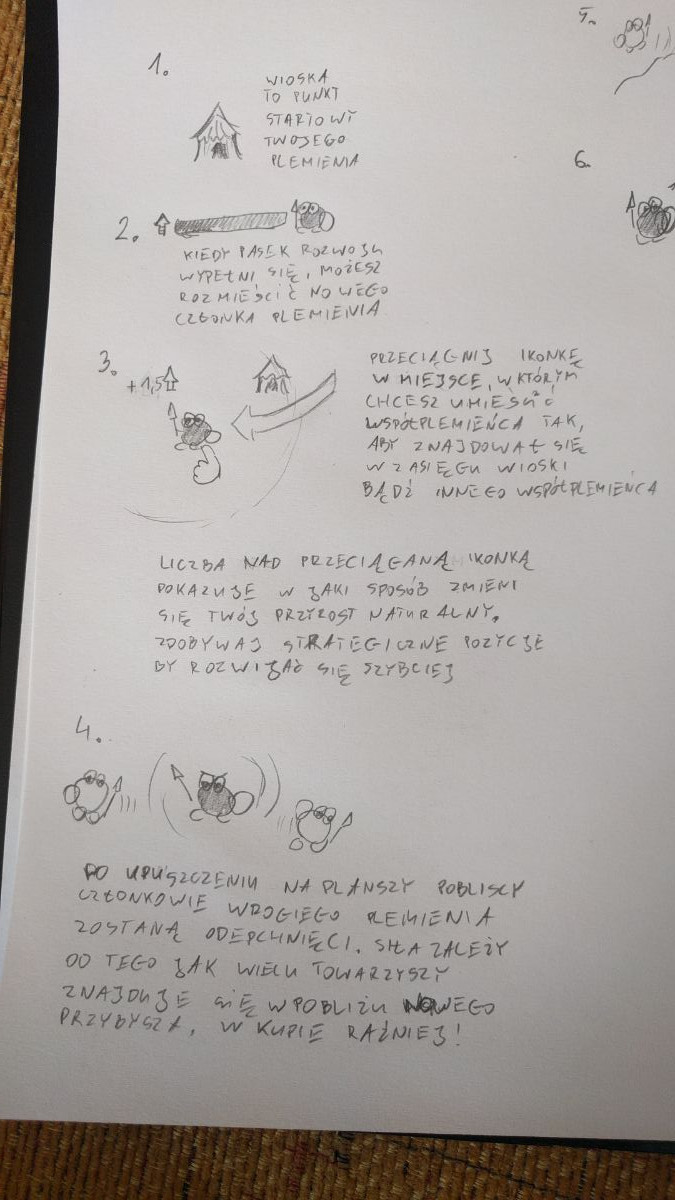 1.
WIOSKA
TO PUNKT
STARTOWY
TWOJEGO
PLEMIENIA
2.
KIEDY PASEK ROZWOJU
WYPEŁNI SIĘ, MOŻESZ
ROZMIEŚCIĆ NOWEGO
CZŁONKA PLEMIENIA
3.
+1,5
PRZECIĄGNIJ IKONKĘ
W MIEJSCE, W KTÓRYM
CHCESZ UMIEŚCIĆ
WSPÓŁPLEMIEŃCA TAK,
ABY ZNAJDOWAŁ SIĘ
W ZASIĘGU WIOSKI
BĄDŹ INNEGO WSPÓŁPLEMIEŃCA
LICZBA NAD PRZECIĄGANĄ IKONKĄ
POKAZUJE W JAKI SPOSÓB ZMIENI
SIĘ TWÓJ PRZYROST NATURALNY.
ZDOBYWAJ STRATEGICZNE POZYCJE
BY ROZWIJAĆ SIĘ SZYBCIEJ
4.
PO UPUSZCZENIU NA PLANSZY POBLISCY
CZŁONKOWIE WROGIEGO PLEMIENIA
ZOSTANĄ ODEPCHNIĘCI. SIŁA ZALEŻY
OD TEGO JAK WIELU TOWARZYSZY
ZNAJDUJE SIĘ W POBLIŻU NOWEGO
PRZYBYSZA. W KUPIE RAŹNIEJ!
5.
6.